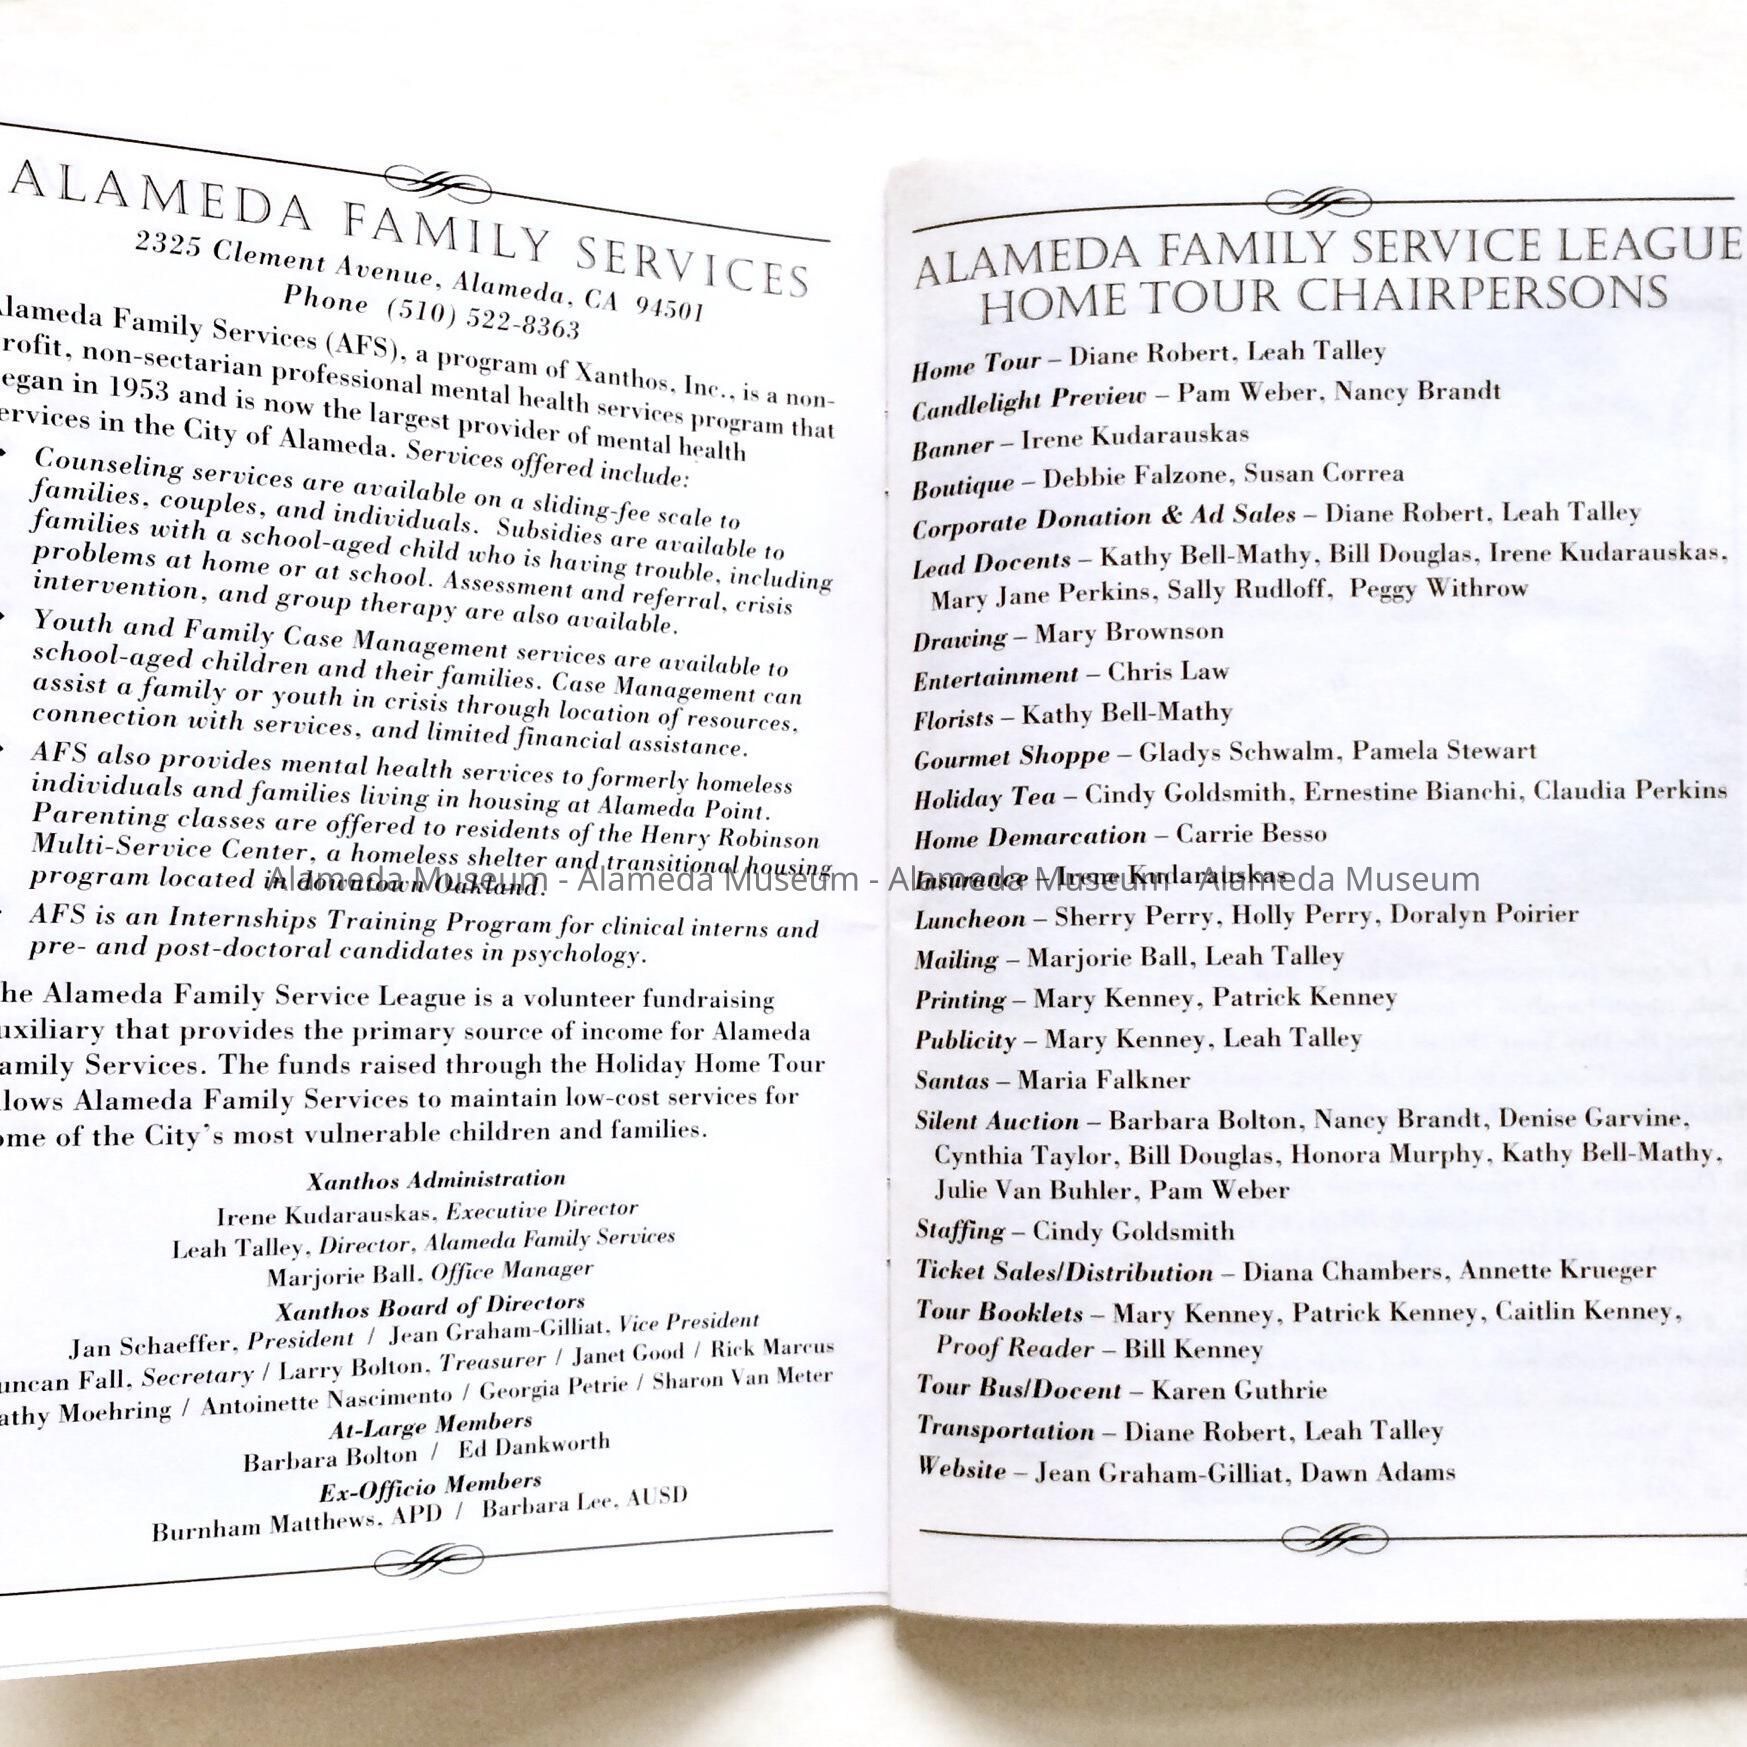 ALAMEDA FAMILY SERVICES
2325 Clement Avenue, Alameda, CA 94501
Phone (510) 522-8363
lameda Family Services (AFS), a program of Xanthos, Inc., is a non-
rofit, non-sectarian professional mental health services program that
egan in 1953 and is now the largest provider of mental health
ervices in the City of Alameda. Services offered include:
Counseling services are available on a sliding-fee scale to
families, couples, and individuals. Subsidies are available to
families with a school-aged child who is having trouble, including
problems at home or at school. Assessment and referral, crisis
intervention, and group therapy are also available.
Youth and Family Case Management services are available to
school-aged children and their families. Case Management can
assist a family or youth in crisis through location of resources,
connection with services, and limited financial assistance.
AFS also provides mental health services to formerly homeless
individuals and families living in housing at Alameda Point.
Parenting classes are offered to residents of the Henry Robinson
Multi-Service Center, a homeless shelter and transitional housing
program located in downtown Oakland.
AFS is an Internships Training Program for clinical interns and
pre- and post-doctoral candidates in psychology.
he Alameda Family Service League is a volunteer fundraising
uxiliary that provides the primary source of income for Alameda
amily Services. The funds raised through the Holiday Home Tour
lows Alameda Family Services to maintain low-cost services for
ome of the City's most vulnerable children and families.
Xanthos Administration
Irene Kudarauskas, Executive Director
Leah Talley, Director, Alameda Family Services
Marjorie Ball, Office Manager
Xanthos Board of Directors
Jan Schaeffer, President / Jean Graham-Gilliat, Vice President
uncan Fall, Secretary / Larry Bolton, Treasurer / Janet Good / Rick Marcus
athy Moehring / Antoinette Nascimento / Georgia Petrie / Sharon Van Meter
At-Large Members
Barbara Bolton / Ed Dankworth
Ex-Officio Members
Burnham Matthews, APD / Barbara Lee, AUSD
ALAMEDA FAMILY SERVICE LEAGUE
HOME TOUR CHAIRPERSONS
Home Tour – Diane Robert, Leah Talley
Candlelight Preview – Pam Weber, Nancy Brandt
Banner – Irene Kudarauskas
Boutique – Debbie Falzone, Susan Correa
Corporate Donation & Ad Sales – Diane Robert, Leah Talley
Lead Docents – Kathy Bell-Mathy, Bill Douglas, Irene Kudarauskas,
Mary Jane Perkins, Sally Rudloff, Peggy Withrow
Drawing – Mary Brownson
Entertainment – Chris Law
Florists – Kathy Bell-Mathy
Gourmet Shoppe – Gladys Schwalm, Pamela Stewart
Holiday Tea – Cindy Goldsmith, Ernestine Bianchi, Claudia Perkins
Home Demarcation – Carrie Besso
Insurance – Irene Kudarauskas
Luncheon – Sherry Perry, Holly Perry, Doralyn Poirier
Mailing – Marjorie Ball, Leah Talley
Printing – Mary Kenney, Patrick Kenney
Publicity – Mary Kenney, Leah Talley
Santas – Maria Falkner
Silent Auction – Barbara Bolton, Nancy Brandt, Denise Garvine,
Cynthia Taylor, Bill Douglas, Honora Murphy, Kathy Bell-Mathy,
Julie Van Buhler, Pam Weber
Staffing – Cindy Goldsmith
Ticket Sales/Distribution – Diana Chambers, Annette Krueger
Tour Booklets – Mary Kenney, Patrick Kenney, Caitlin Kenney,
Proof Reader – Bill Kenney
Tour Bus/Docent – Karen Guthrie
Transportation – Diane Robert, Leah Talley
Website – Jean Graham-Gilliat, Dawn Adams
Alameda Museum - Alameda Museum - Alameda Museum - Alameda Museum